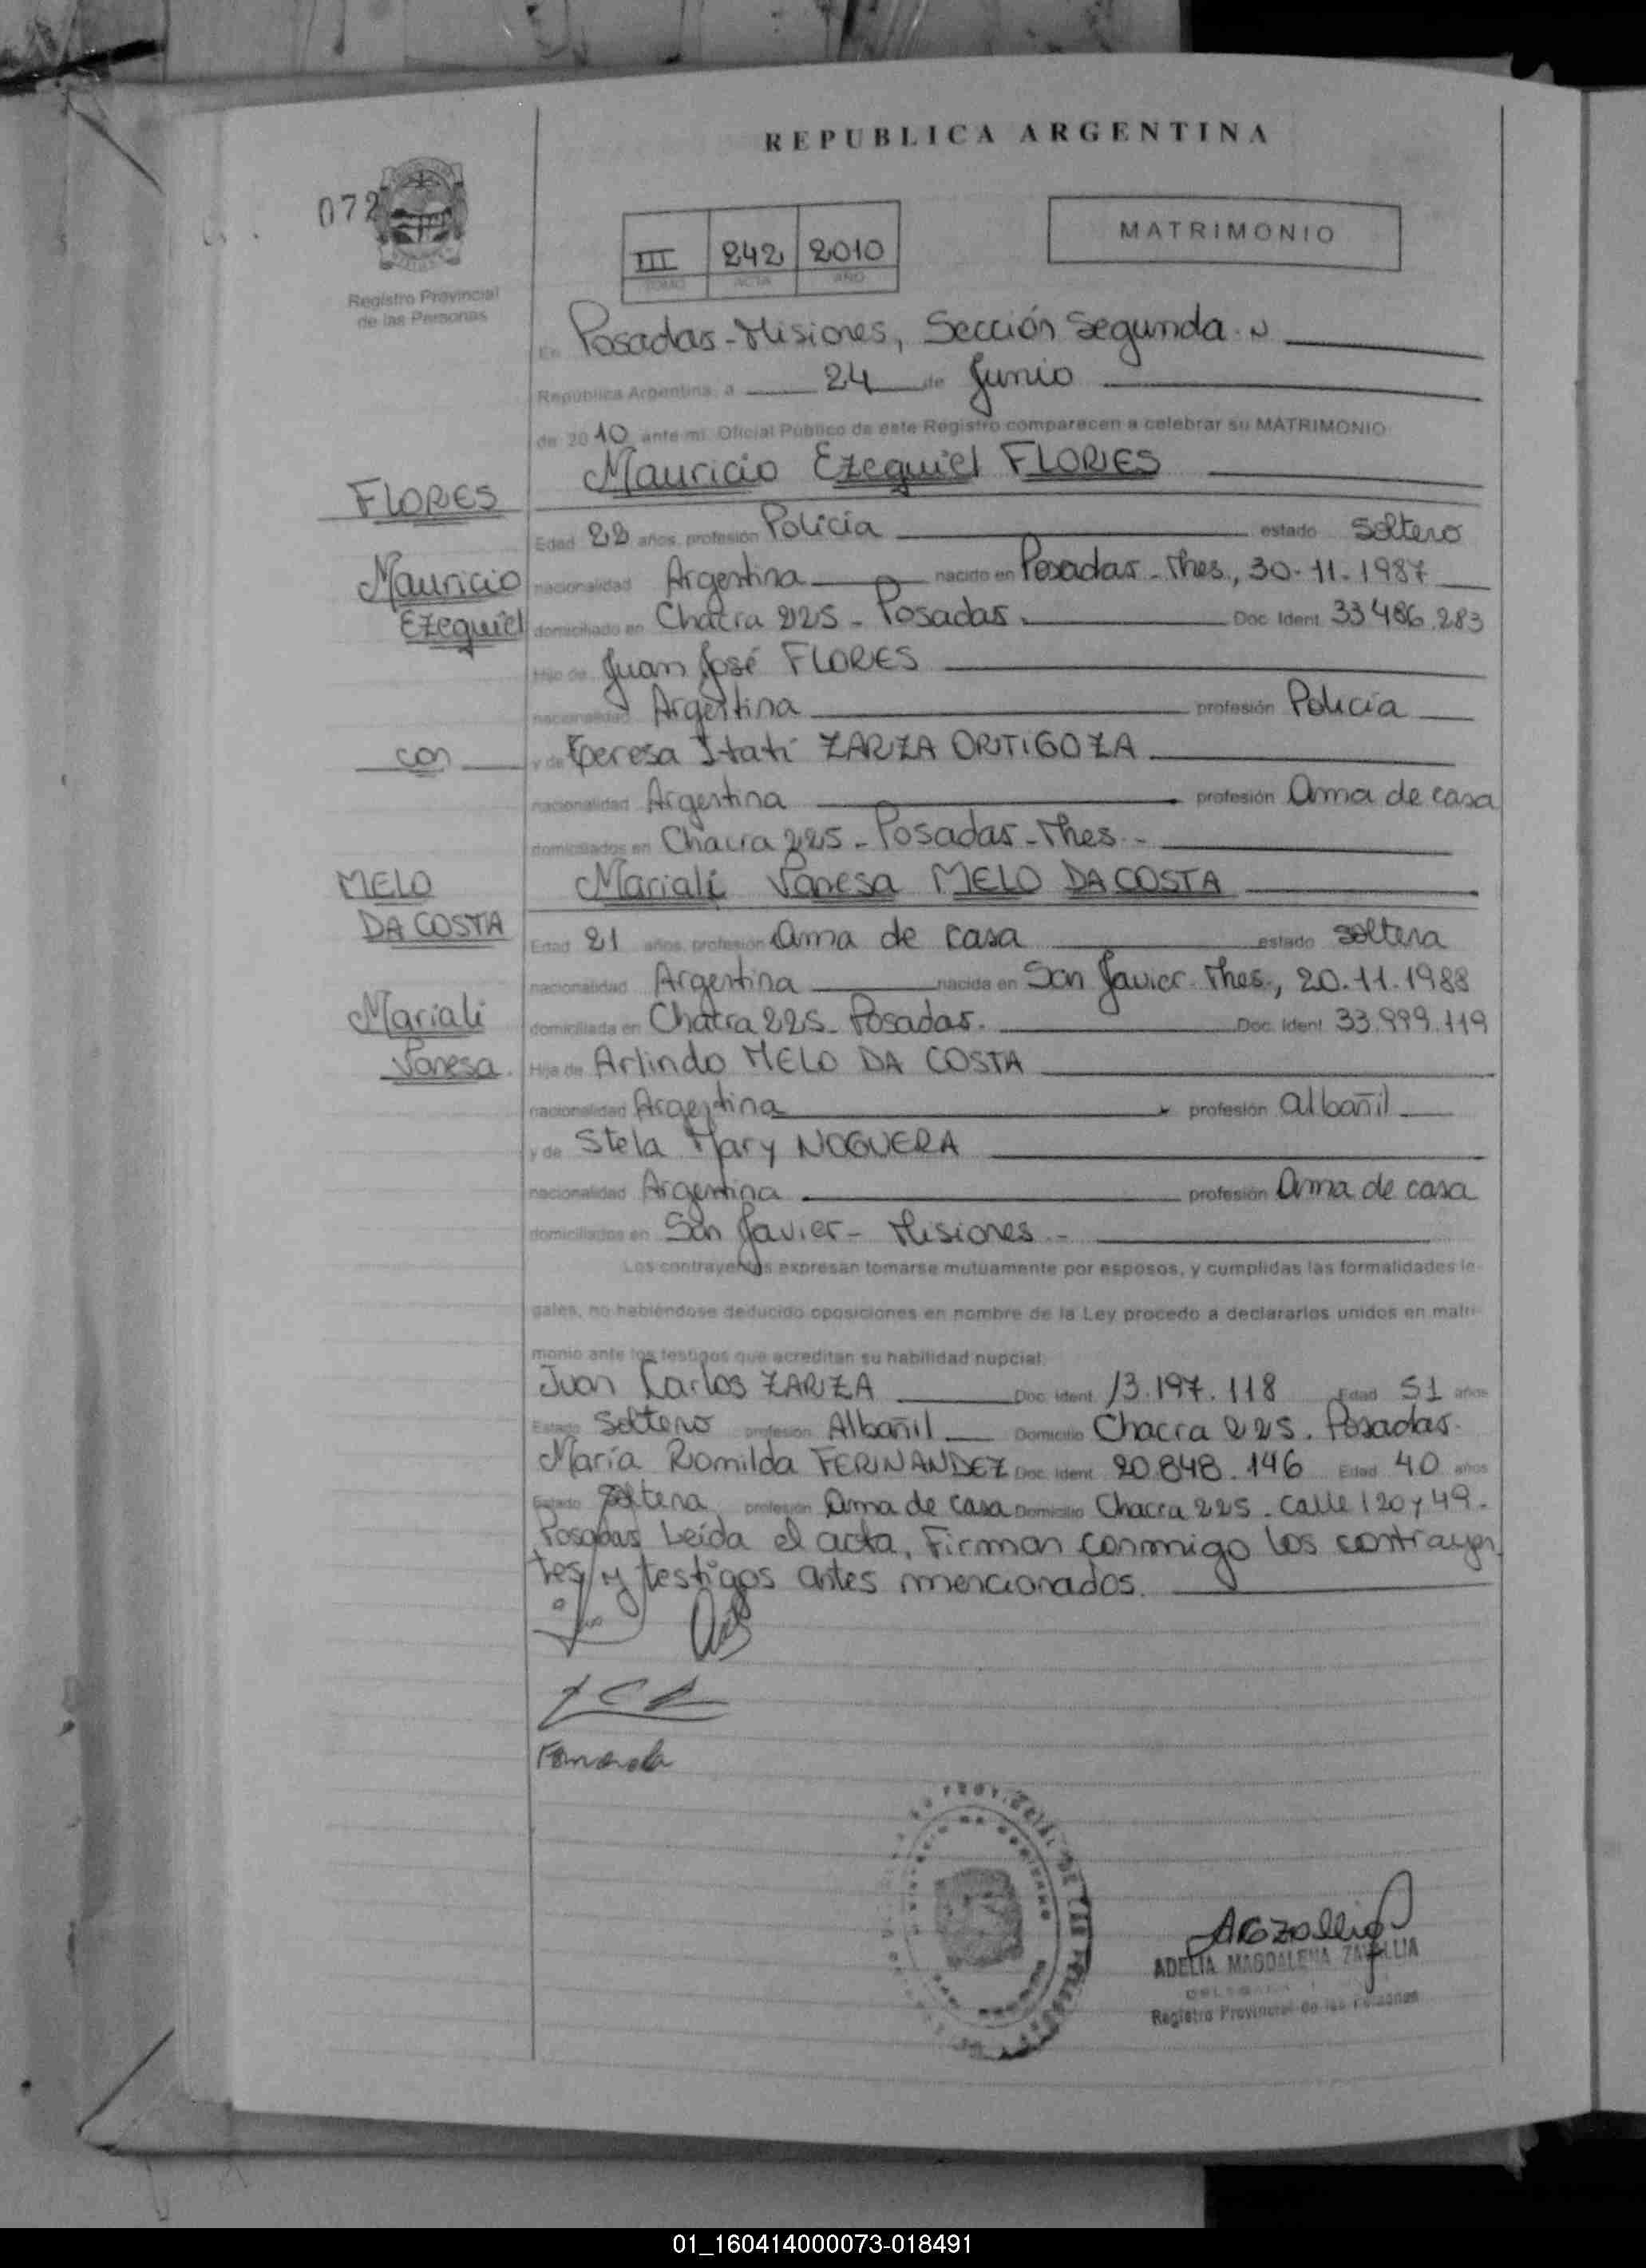 REPUBLICA ARGENTINA
072
MATRIMONIO
III 242 2010
TOMO ACTA AÑO
Registro Provincial
de las Personas
En Posadas - Misiones, Sección Segunda.
República Argentina, a 24 de Junio
de 2010 ante mí, Oficial Público de este Registro comparecen a celebrar su MATRIMONIO
Mauricio Ezequiel FLORES
FLORES
Edad 22 años, profesión Policía estado Soltero
Mauricio
nacionalidad Argentina nacido en Posadas - Mnes., 30-11-1987
Ezequiel
domiciliado en Chacra 225 - Posadas. Doc. Ident. 33486.283
Hijo de Juan José FLORES
nacionalidad Argentina profesión Policía
con
y de Teresa Itatí ZARZA ORTIGOZA
nacionalidad Argentina profesión ama de casa
domiciliados en Chacra 225 - Posadas - Mnes. -
MELO
Marialí Vanesa MELO DA COSTA
DA COSTA
Edad 21 años, profesión ama de casa estado soltera
nacionalidad Argentina nacida en San Javier - Mnes., 20.11.1988
Marialí
domiciliada en Chacra 225 - Posadas. Doc. Ident. 33.999.119
Vanesa.
Hija de Arlindo MELO DA COSTA
nacionalidad Argentina profesión albañil
y de Stela Mary NOGUERA
nacionalidad Argentina profesión ama de casa
domiciliados en San Javier - Misiones. -
Los contrayentes expresan tomarse mutuamente por esposos, y cumplidas las formalidades le-
gales, no habiéndose deducido oposiciones en nombre de la Ley procedo a declararlos unidos en matri-
monio ante los testigos que acreditan su habilidad nupcial:
Juan Carlos ZARZA Doc. Ident. 13.197.118 Edad 51 años
Estado Soltero profesión Albañil Domicilio Chacra 225. Posadas.
María Romilda FERNANDEZ Doc. Ident. 20.848.146 Edad 40 años
Estado Soltera profesión ama de casa Domicilio Chacra 225. Calle 120 y 49.
Posadas Leída el acta, Firman conmigo los contrayen
tes y testigos antes mencionados.
ADELIA MAGDALENA ZAVALLIA
Registro Provincial de las Personas
01_160414000073-018491